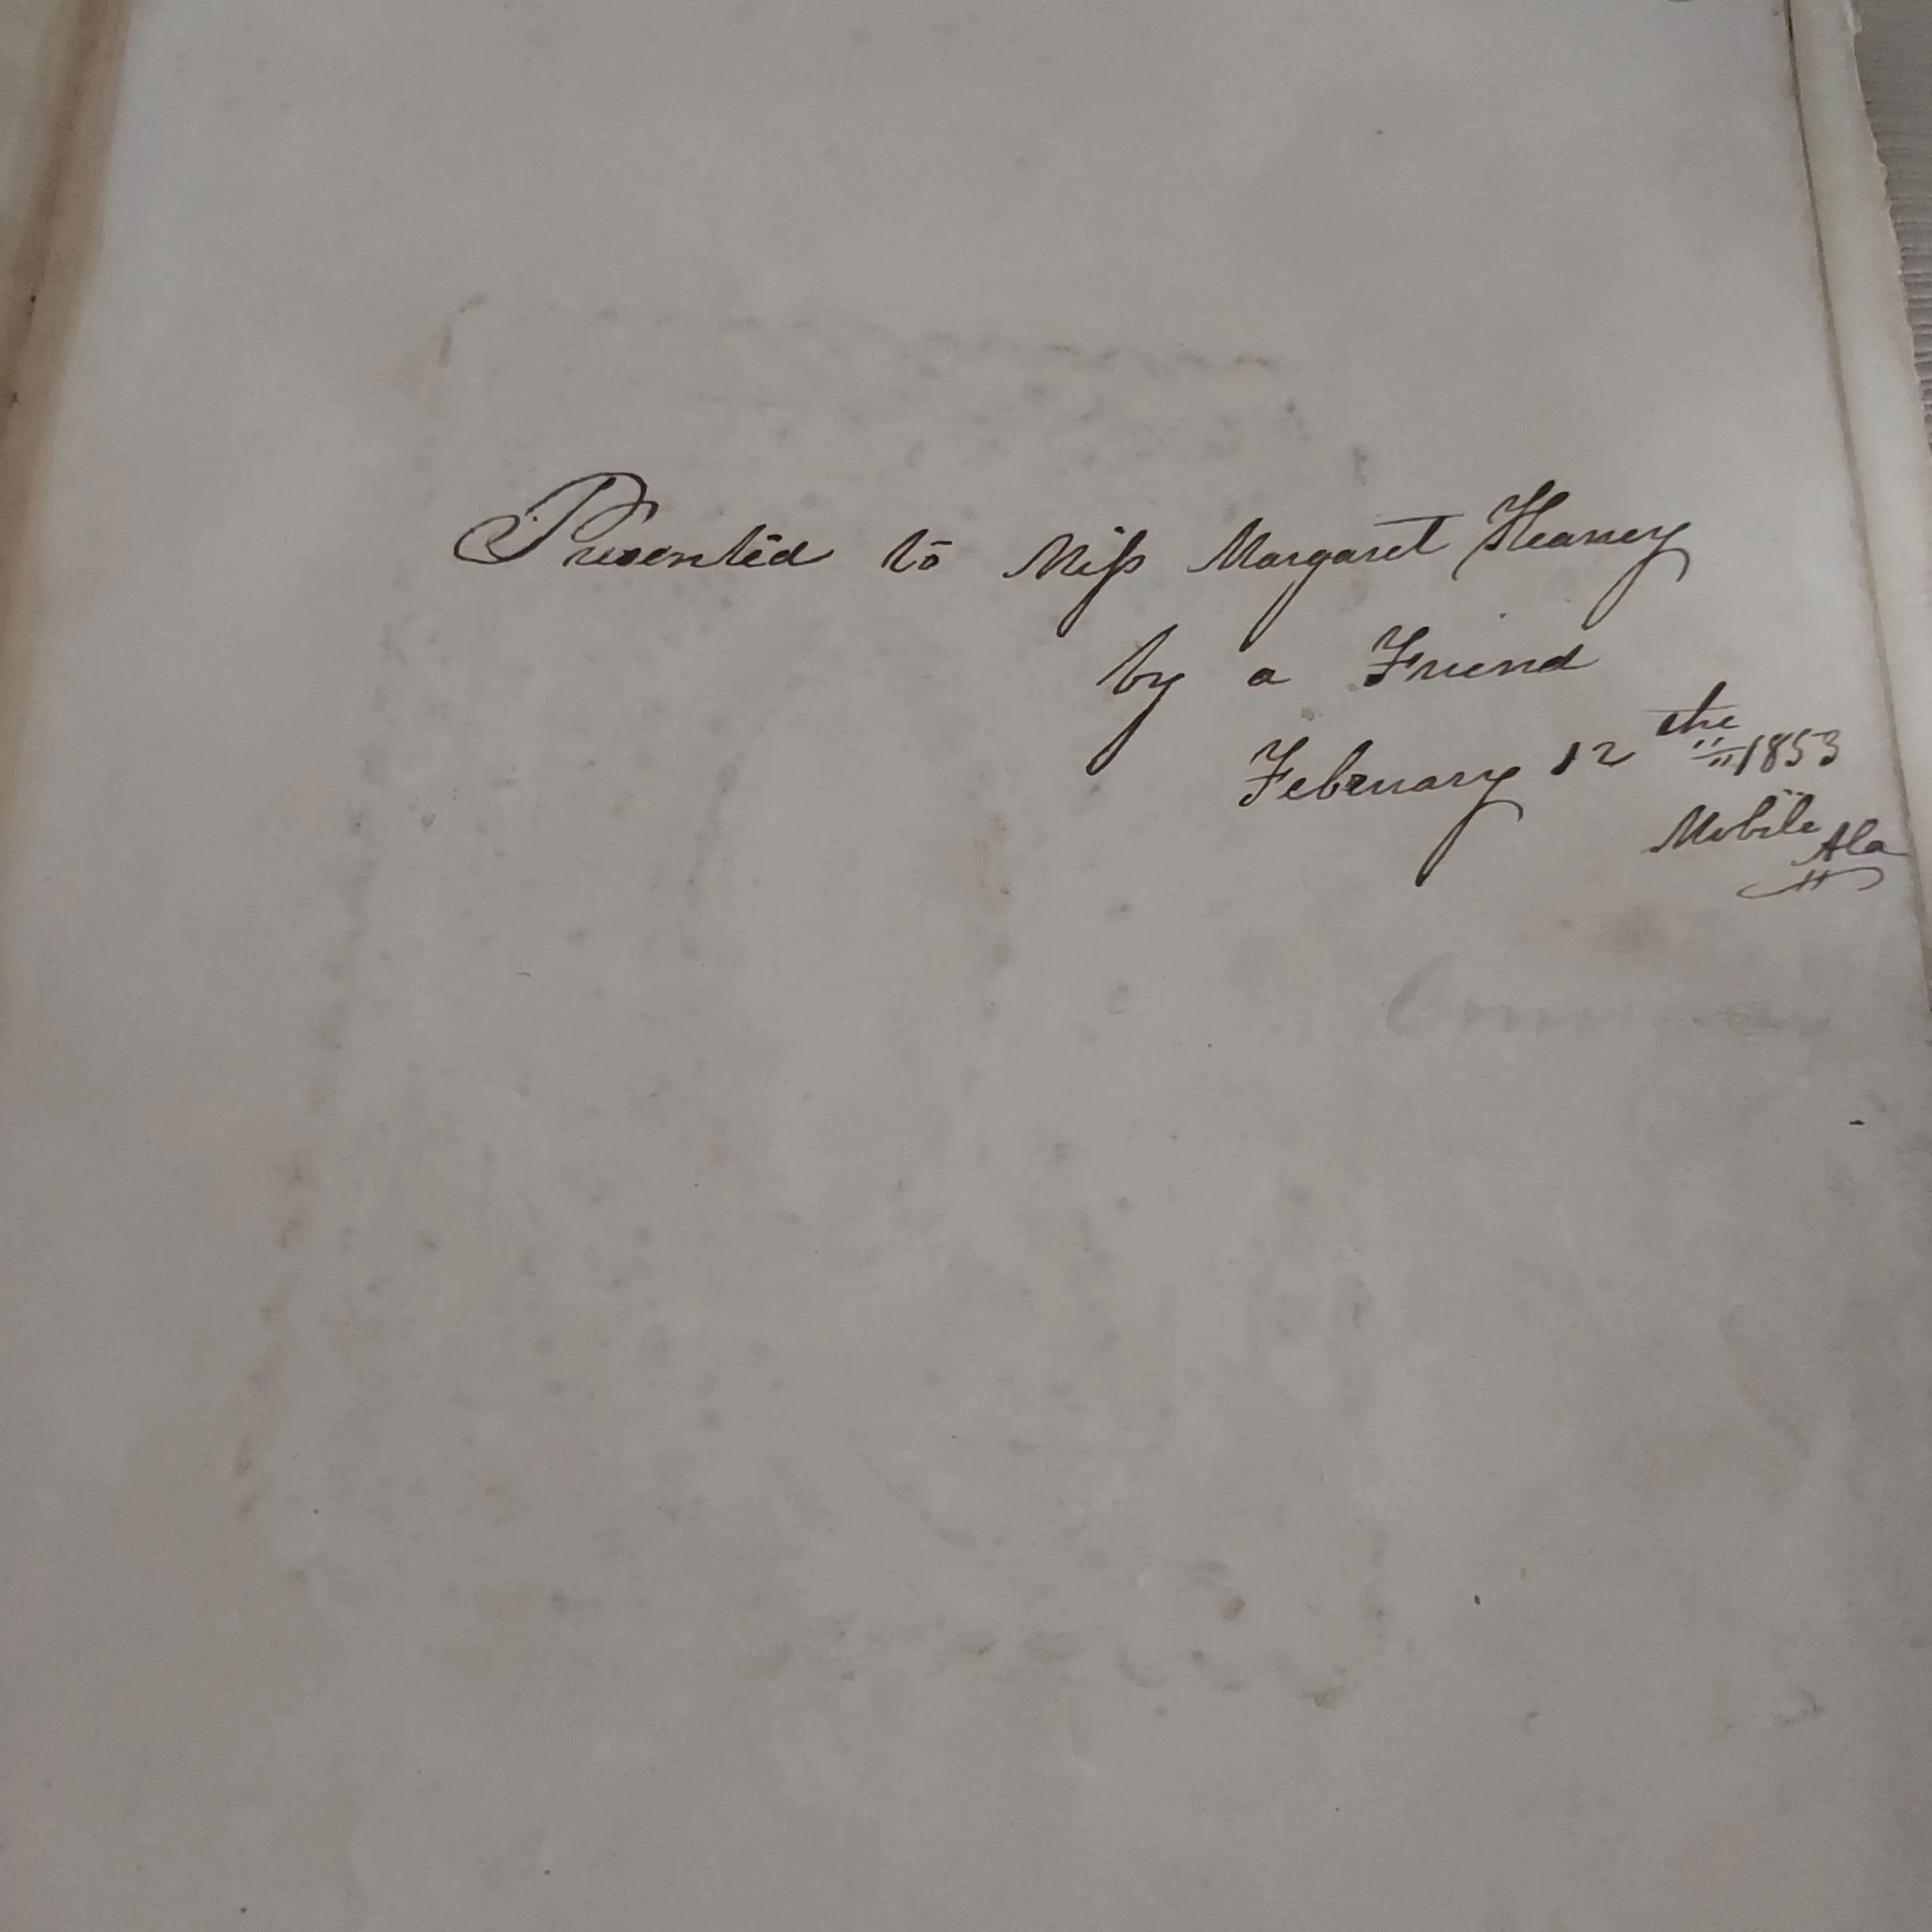 Presented to Miſs Margaret Heaney
by a Friend
February 12 the 1853
Mobile Ala